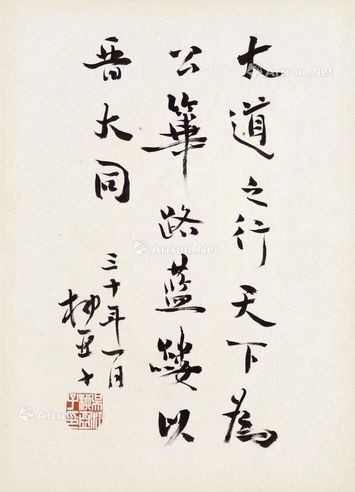 大道之行天下為
公篳路藍縷以
晉大同
三十年一月
柳亞子
Artron.Net
Artron.Net